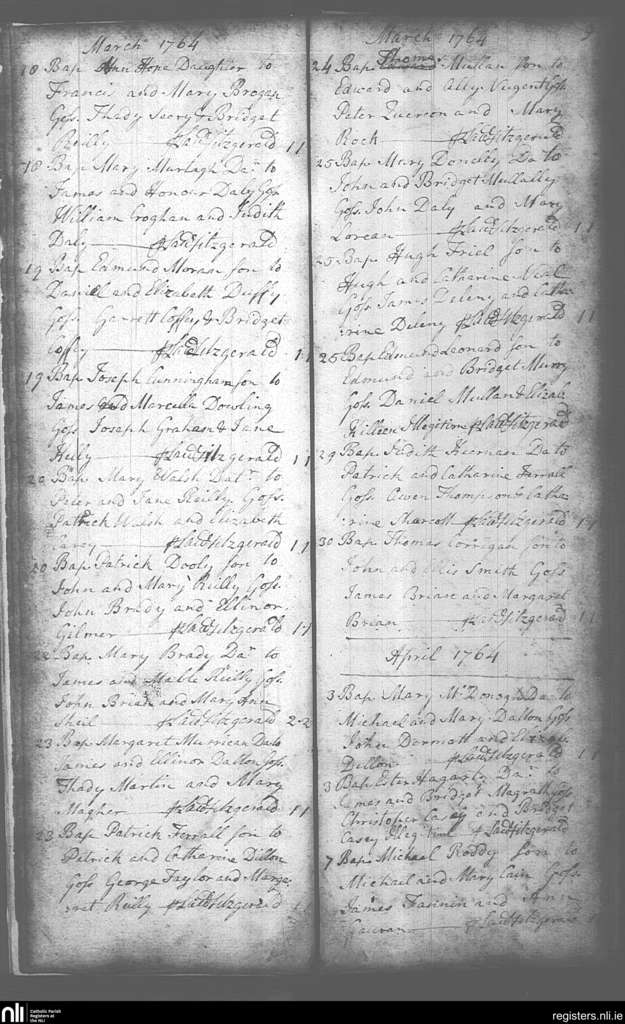 March 1764
18 Bap Ann Hope Daughter to
Francis and Mary Brogan
Goss. Thady Seory & Bridget
Reilly Lau: Fitzgerald 1 1
18 Bap Mary Murtagh Da: to
James and Honour Daly Goss
William Croghan and Judith
Daly Lau: Fitzgerald
19 Bap Edmund Moran son to
Daniel and Elizabeth Duffy
Goss Garrett Coffey & Bridget
Coffey Lau: Fitzgerald 1 1
19 Bap Joseph Cunningham son to
James and Marcella Dowling
Goss Joseph Graham & Jane
Lau: Fitzgerald 1 1
20 Bap Mary Walsh Da: to
Peter and Jane Reilly Goss.
Patrick Walsh and Elizabeth
Carey Lau: Fitzgerald 1 1
20 Bap Patrick Dooly son to
John and Mary Reilly Goss.
John Brady and Ellinor
Gilmer Lau: Fitzgerald 1 1
Bap Mary Brady Da: to
James and Malle Reilly Goss
John Brian and Mary Ann
Sheil Lau: Fitzgerald 2-2
23 Bap Margaret Murrican Da to
James and Ellinor Dalton Goss.
Thady Martin and Mary
Magher Lau: Fitzgerald 1 1
23 Bap Patrick Ferrall son to
Patrick and Catharine Dillon
Goss George Taylor and Marga-
ret Reilly Lau: Fitzgerald
March 1764
24 Bap Thomas Mullan son to
Edward and Ally Nugent Goss
Peter and Mary
Rock Lau: Fitzgerald
25 Bap Mary Doneley Da to
John and Bridget Mullally
Goss. John Daly and Mary
Lorcan Lau: Fitzgerald 1 1
25 Bap Hugh Friel son to
Hugh and Catharine Neal
Goss James Deleny and Catha
:rine Deleny Lau: Fitzgerald 1 1
25 Bap Edmund Leonard son to
Edmund and Bridget Murry
Goss. Daniel Mullan & Elizab
Killeen Illigitime Lau: Fitzgerald
29 Bap Judith Heernan Da to
Patrick and Catharine Ferrall
Goss Owen Thompson & Catha
:rine Sharcott Lau: Fitzgerald 1 1
30 Bap Thomas Corrigan son to
John and Smith Goss
James Briane and Margaret
Brian Lau: Fitzgerald 1 1
April 1764
3 Bap Mary McDonogh Da to
Michael and Mary Dalton Goss
John Dermott and
Dillon Lau: Fitzgerald 1 1
3 Bap Ester Hagarty Da: to
James and Bridget Magrath Goss
Christopher Casey and Bridget
Casey Illegitime Lau: Fitzgerald
7 Bap Michael Roddy son to
Michael and Mary Cain Goss.
James Fannin and Ann
Lau: Fitzgerald
nli
Catholic Parish
Registers at
the NLI
registers.nli.ie